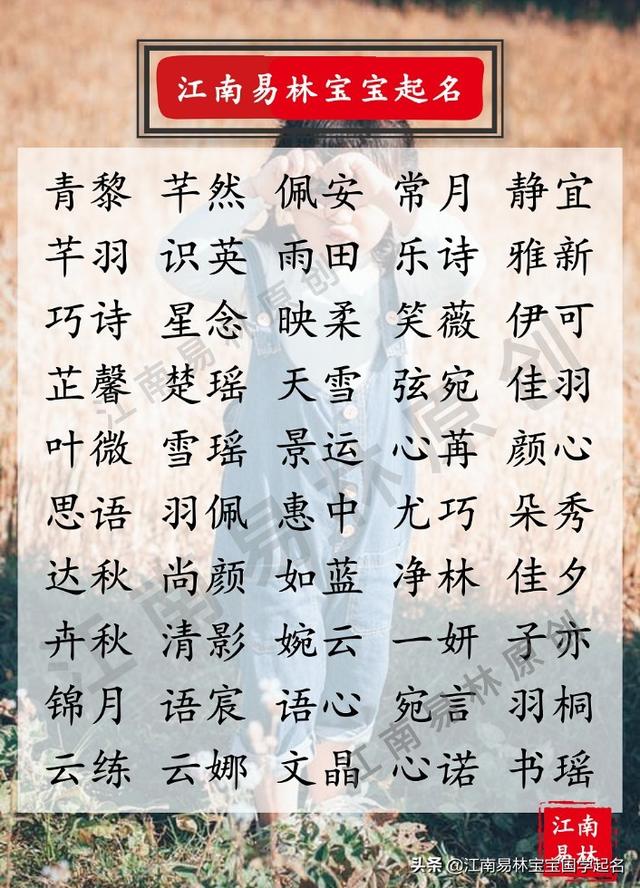 江南易林宝宝起名
青黎 芊然 佩安 常月 静宜
芊羽 识英 雨田 乐诗 雅新
巧诗 星念 映柔 笑薇 伊可
芷馨 楚瑶 天雪 弦宛 佳羽
叶微 雪瑶 景运 心苒 颜心
思语 羽佩 惠中 尤巧 朵秀
达秋 尚颜 如蓝 净林 佳夕
卉秋 清影 婉云 一妍 子亦
锦月 语宸 语心 宛言 羽桐
云练 云娜 文晶 心诺 书瑶
江南易林原创
江南易林原创
江南易林原创
江南
易林
头条 @江南易林宝宝国学起名